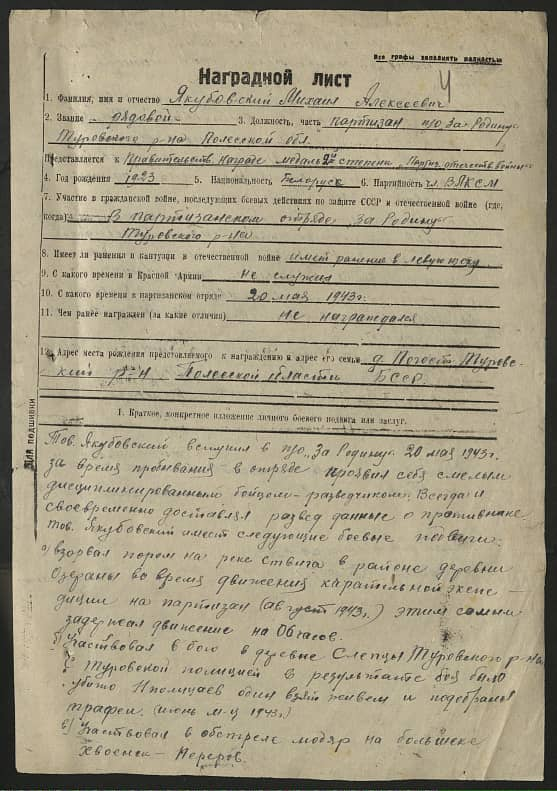 Все графы заполнять полностью
4
Наградной лист
1. Фамилия, имя и отчество Якубовский Михаил Алексеевич
2. Звание рядовой 3. Должность, часть партизан п/о „За Родину“
Туровского р-на Полесской обл.
Представляется к Правительств. награде медаль 2й степени „Партиз. отечеств. войны“
4. Год рождения 1923 5. Национальность Белорус 6. Партийность чл. ВЛКСМ
7. Участие в гражданской войне, последующих боевых действиях по защите СССР и отечественной войне (где,
когда) В партизанском отряде „За Родину“
Туровского р-на
8. Имеет ли ранения и контузии в отечественной войне имеет ранение в левую ногу
9. С какого времени в Красной Армии не служил
10. С какого времени в партизанском отряде 20 мая 1943 г.
11. Чем ранее награжден (за какие отличия) не награждался
12. Адрес места рождения представляемого к награждению и адрес его семьи д. Погост Туровс-
ский р-н Полесской области БССР
Для подшивки
1. Краткое, конкретное изложение личного боевого подвига или заслуг.
Тов. Якубовский вступил в п/о „За Родину“ 20 мая 1943 г.
за время пребывания в отряде проявил себя смелым
дисциплинированным бойцом-разведчиком. Всегда и
своевременно доставлял развед данные о противнике
тов. Якубовский имеет следующие боевые подвиги:
а) взорвал паром на реке Ствига в районе деревни
Озераны во время движения карательной экспе-
диции на партизан (август 1943 г.) этим самым
задержал движение на 8 часов.
б) Участвовал в бою в деревне Слепцы Туровского р-на
с Туровской полицией в результате боя было
убито 11 полицаев один взят живем и подобраны
трофеи. (июнь м-ц 1943 г.)
в) Участвовал в обстреле мадяр на большаке
Хвоенск-